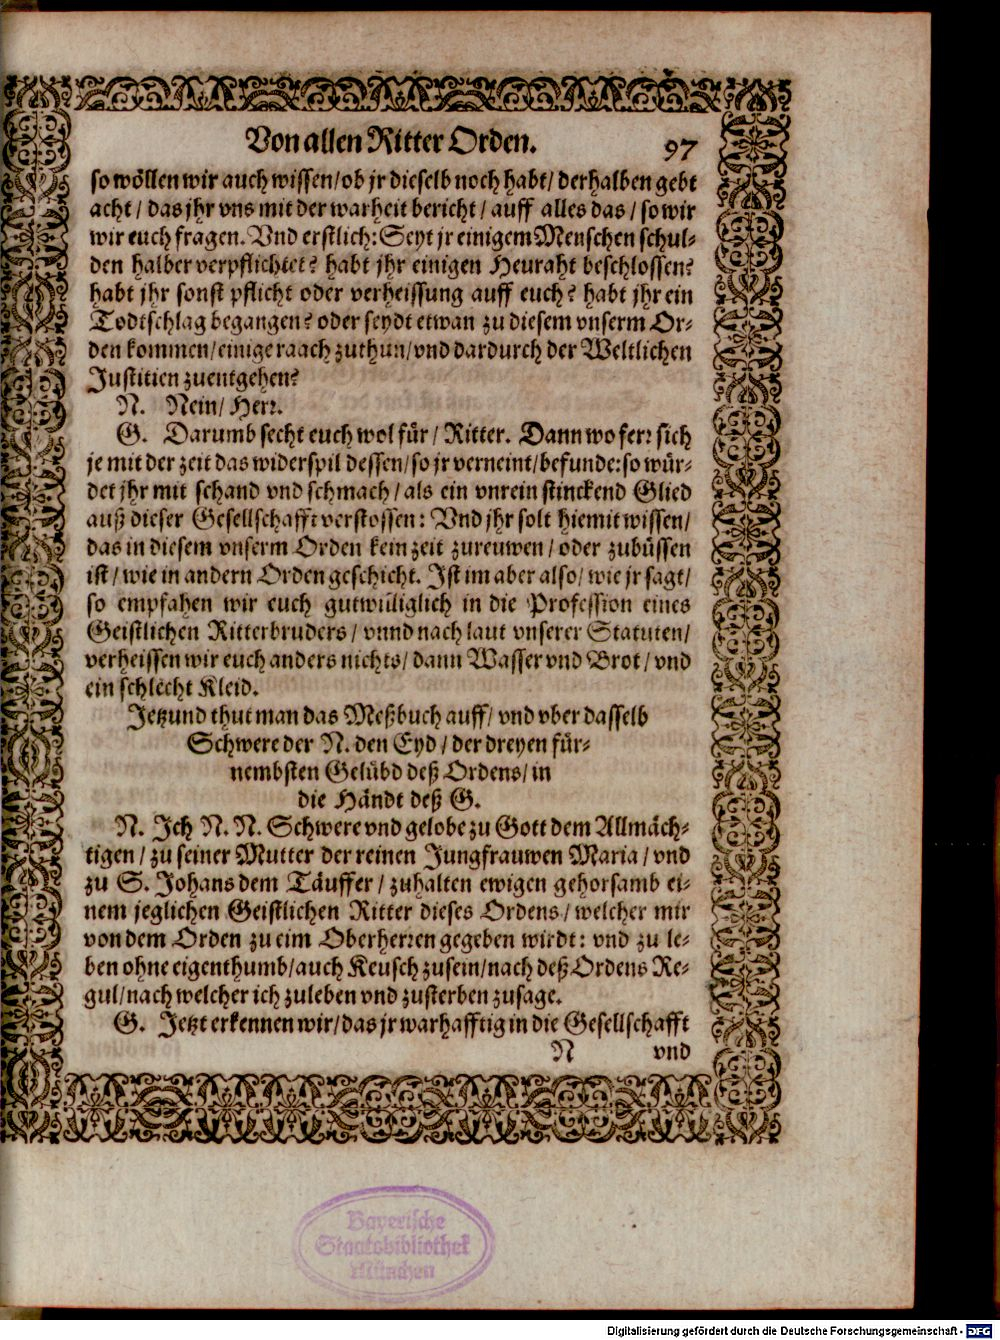 Von allen Ritter Orden. 97
so wöllen wir auch wissen/ ob jr dieselb noch habt/ derhalben gebt
acht/ das jhr vns mit der warheit bericht/ auff alles das/ so wir
wir euch fragen. Vnd erstlich: Seyt jr einigem Menschen schul-
den halber verpflichtet? habt jhr einigen Heuraht beschlossen?
habt jhr sonst pflicht oder verheissung auff euch? habt jhr ein
Todtschlag begangen? oder seydt etwan zu diesem vnserm Or-
den kommen/ einige raach zuthun/ vnd dardurch der Weltlichen
Justitien zuentgehen?
N. Nein/ Herr.
G. Darumb secht euch wol für/ Ritter. Dann wo ferr sich
je mit der zeit das widerspil dessen/ so jr verneint/ befunde: so wür-
det jhr mit schand vnd schmach/ als ein vnrein stinckend Glied
auß dieser Gesellschafft verstossen: Vnd jhr solt hiemit wissen/
das in diesem vnserm Orden kein zeit zureuwen/ oder zubüssen
ist/ wie in andern Orden geschicht. Ist im aber also/ wie jr sagt/
so empfahen wir euch gutwilliglich in die Profession eines
Geistlichen Ritterbruders/ vnnd nach laut vnserer Statuten/
verheissen wir euch anders nichts/ dann Wasser vnd Brot/ vnd
ein schlecht Kleid.
Jetzund thut man das Meßbuch auff/ vnd vber dasselb
Schwere der N. den Eyd/ der dreyen für-
nembsten Gelübd deß Ordens/ in
die Händt deß G.
N. Ich N. N. Schwere vnd gelobe zu Gott dem Allmäch-
tigen/ zu seiner Mutter der reinen Jungfrauwen Maria/ vnd
zu S. Johans dem Täuffer/ zuhalten ewigen gehorsamb ei-
nem jeglichen Geistlichen Ritter dieses Ordens/ welcher mir
von dem Orden zu eim Oberherren gegeben wirdt: vnd zu le-
ben ohne eigenthumb/ auch Keusch zusein/ nach deß Ordens Re-
gul/ nach welcher ich zuleben vnd zusterben zusage.
G. Jetzt erkennen wir/ das jr warhafftig in die Gesellschafft
N vnd
Bayerische
Staatsbibliothek
München
Digitalisierung gefördert durch die Deutsche Forschungsgemeinschaft - DFG